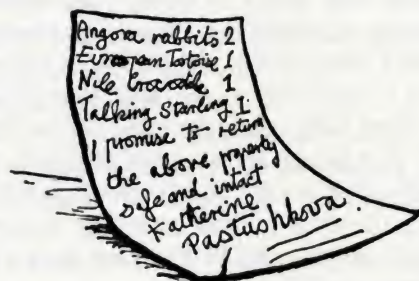 Angora rabbits 2
European Tortoise 1
Nile Crocodile 1
Talking Starling 1
I promise to return
the above property
safe and intact
Katherine
Pastushkova.